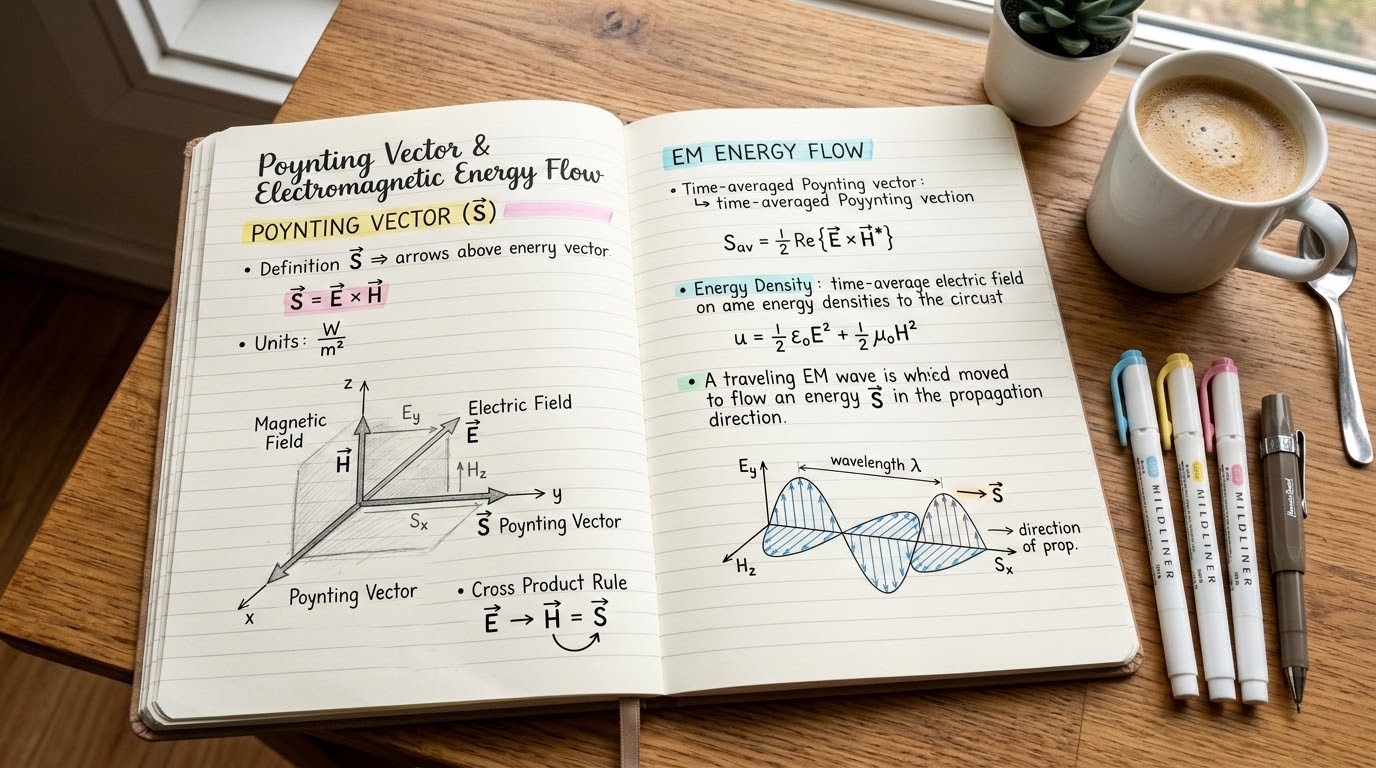 Poynting Vector &
Electromagnetic Energy Flow
POYNTING VECTOR (S⃗)
• Definition S⃗ ⇒ arrows above enerry vector
S⃗ = E⃗ × H⃗
• Units: W/m²
z
Magnetic
Field
H⃗
E_y
Electric Field
E⃗
H_z
y
S_x
S⃗ Poynting Vector
Poynting Vector
x
• Cross Product Rule
E⃗ → H⃗ = S⃗
EM ENERGY FLOW
• Time-averaged Poynting vector:
↳ time-averaged Poyynting vection
S_av = ½ Re{E⃗ × H⃗*}
• Energy Density: time-average electric field
on ame energy densities to the circuat
u = ½ ε₀E² + ½ μ₀H²
• A traveling EM wave is whicd moved
to flow an energy S⃗ in the propagation
direction.
E_y
wavelength λ
S⃗
→ direction
of prop.
H_z
S_x
MILDLINER
MILDLINER
MILDLINER